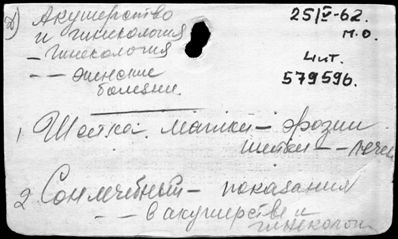 Акушерство
и гинекология
25/V-62.
м.о.
- Гинекология
- - женские
болезни.
Чит.
579596.
1, Шейка матки - эрозии
шейки - - лечен
2, Сон лечебный - показания
- - в акушерстве и
гинеколог